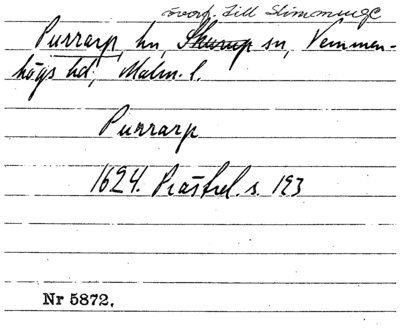 överf. till Slimminge
Purrarp, hn, Skurup sn, Vemmen-
högs hd, Malm. l.
Purrarp
1624. Prästrel. s. 193
Nr 5872.